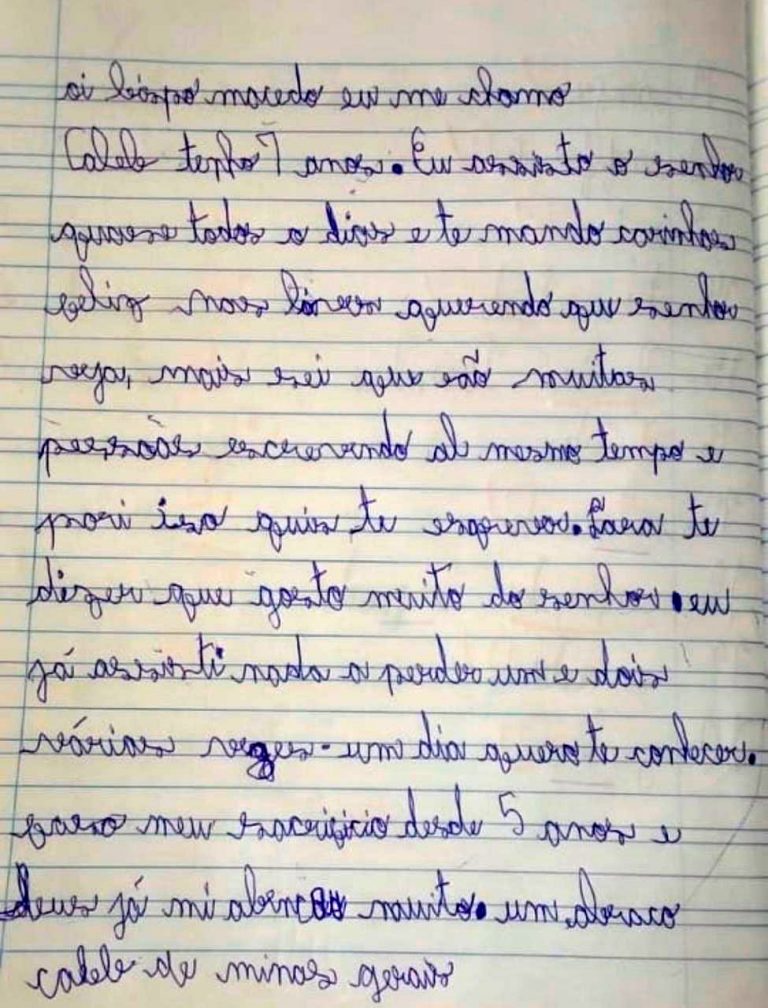 oi bispo macedo eu me chamo
Caleb tenho 7 anos. Eu assisto o senhor
quase todos o dias e te mando carinhas
feliz nas lives querendo que senhor
veja, mais sei que são muitas
pessoas escrevendo ao mesmo tempo e
pori iso quis te esqrevor. Para te
dizer que gosto muito do senhor. eu
já assisti nada a perder um e dois
várias vezes. um dia quero te conhecer.
faço meu sacrificio desde 5 anos e
deus já mi abençoa muito. um abraco
caleb de minas gerais